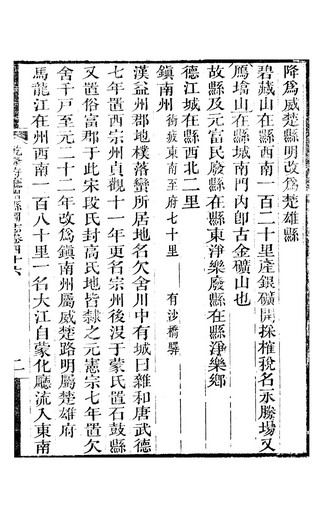 降為威楚縣明改為楚雄縣
碧藏山在縣西南一百二十里產銀礦開採榷稅名永勝場又
鴈㙡山在縣城南門內卽古金礦山也
故縣及元富民廢縣在縣東淨樂廢縣在縣淨樂鄉
德江城在縣西北二里
鎮南州 衝疲東南至府七十里 有沙橋驛
漢益州郡地樸落蠻所居地名欠舍川中有城曰雜和唐武德
七年置西宗州貞觀十一年更名宗州後沒于蒙氏置石鼓縣
又置俗富郡于此宋段氏封高氏地皆隸之元憲宗七年置欠
舍千戶至元二十二年改為鎮南州屬威楚路明屬楚雄府
馬龍江在州西南一百八十里一名大江自蒙化廳流入東南